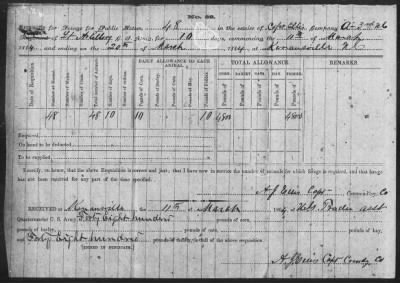 No. 39.
Requisition for Forage for Public Horses, 48 in the service of Capt Ellis Company A 3rd NC
Lt. Artillery for 10 days, commencing the 11th of March
1864, and ending on the 20th of March, 1864, at Kenansville N.C.
DAILY ALLOWANCE TO EACH ANIMAL.
TOTAL ALLOWANCE.
REMARKS
Date of Requisition
Number of Horses.
Number of Mules.
Total Number of Animals.
Number of Days.
Pounds of Corn.
Pounds of Barley.
Pounds of Oats.
Pounds of Hay.
Pounds of Fodder.
CORN. BARLEY. OATS. HAY. FODDER.
48 48 10 10 10 4800 4800
Required,
On hand to be deducted
To be supplied
I certify, on honor, that the above Requisition is correct and just; that I have now in the service the number of animals for which forage is required, and that forage
has not been received for any part of the time specified.
A. J. Ellis Capt
Commanding Co
RECEIVED at Kenansville on 11th of March 1864, of
Quartermaster C. S. Army, Forty Eight hundred pounds of corn,
pounds of barley, pounds of oats, pounds of hay,
and Forty Eight hundred pounds of fodder, in full of the above requisition.
[SIGNED IN DUPLICATE.]
A. J. Ellis Capt Comdg Co